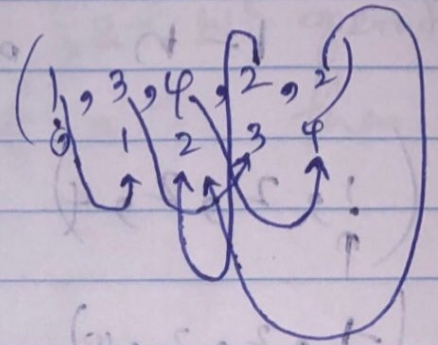 (1, 3, 4, 2, 2)
0 1 2 3 4